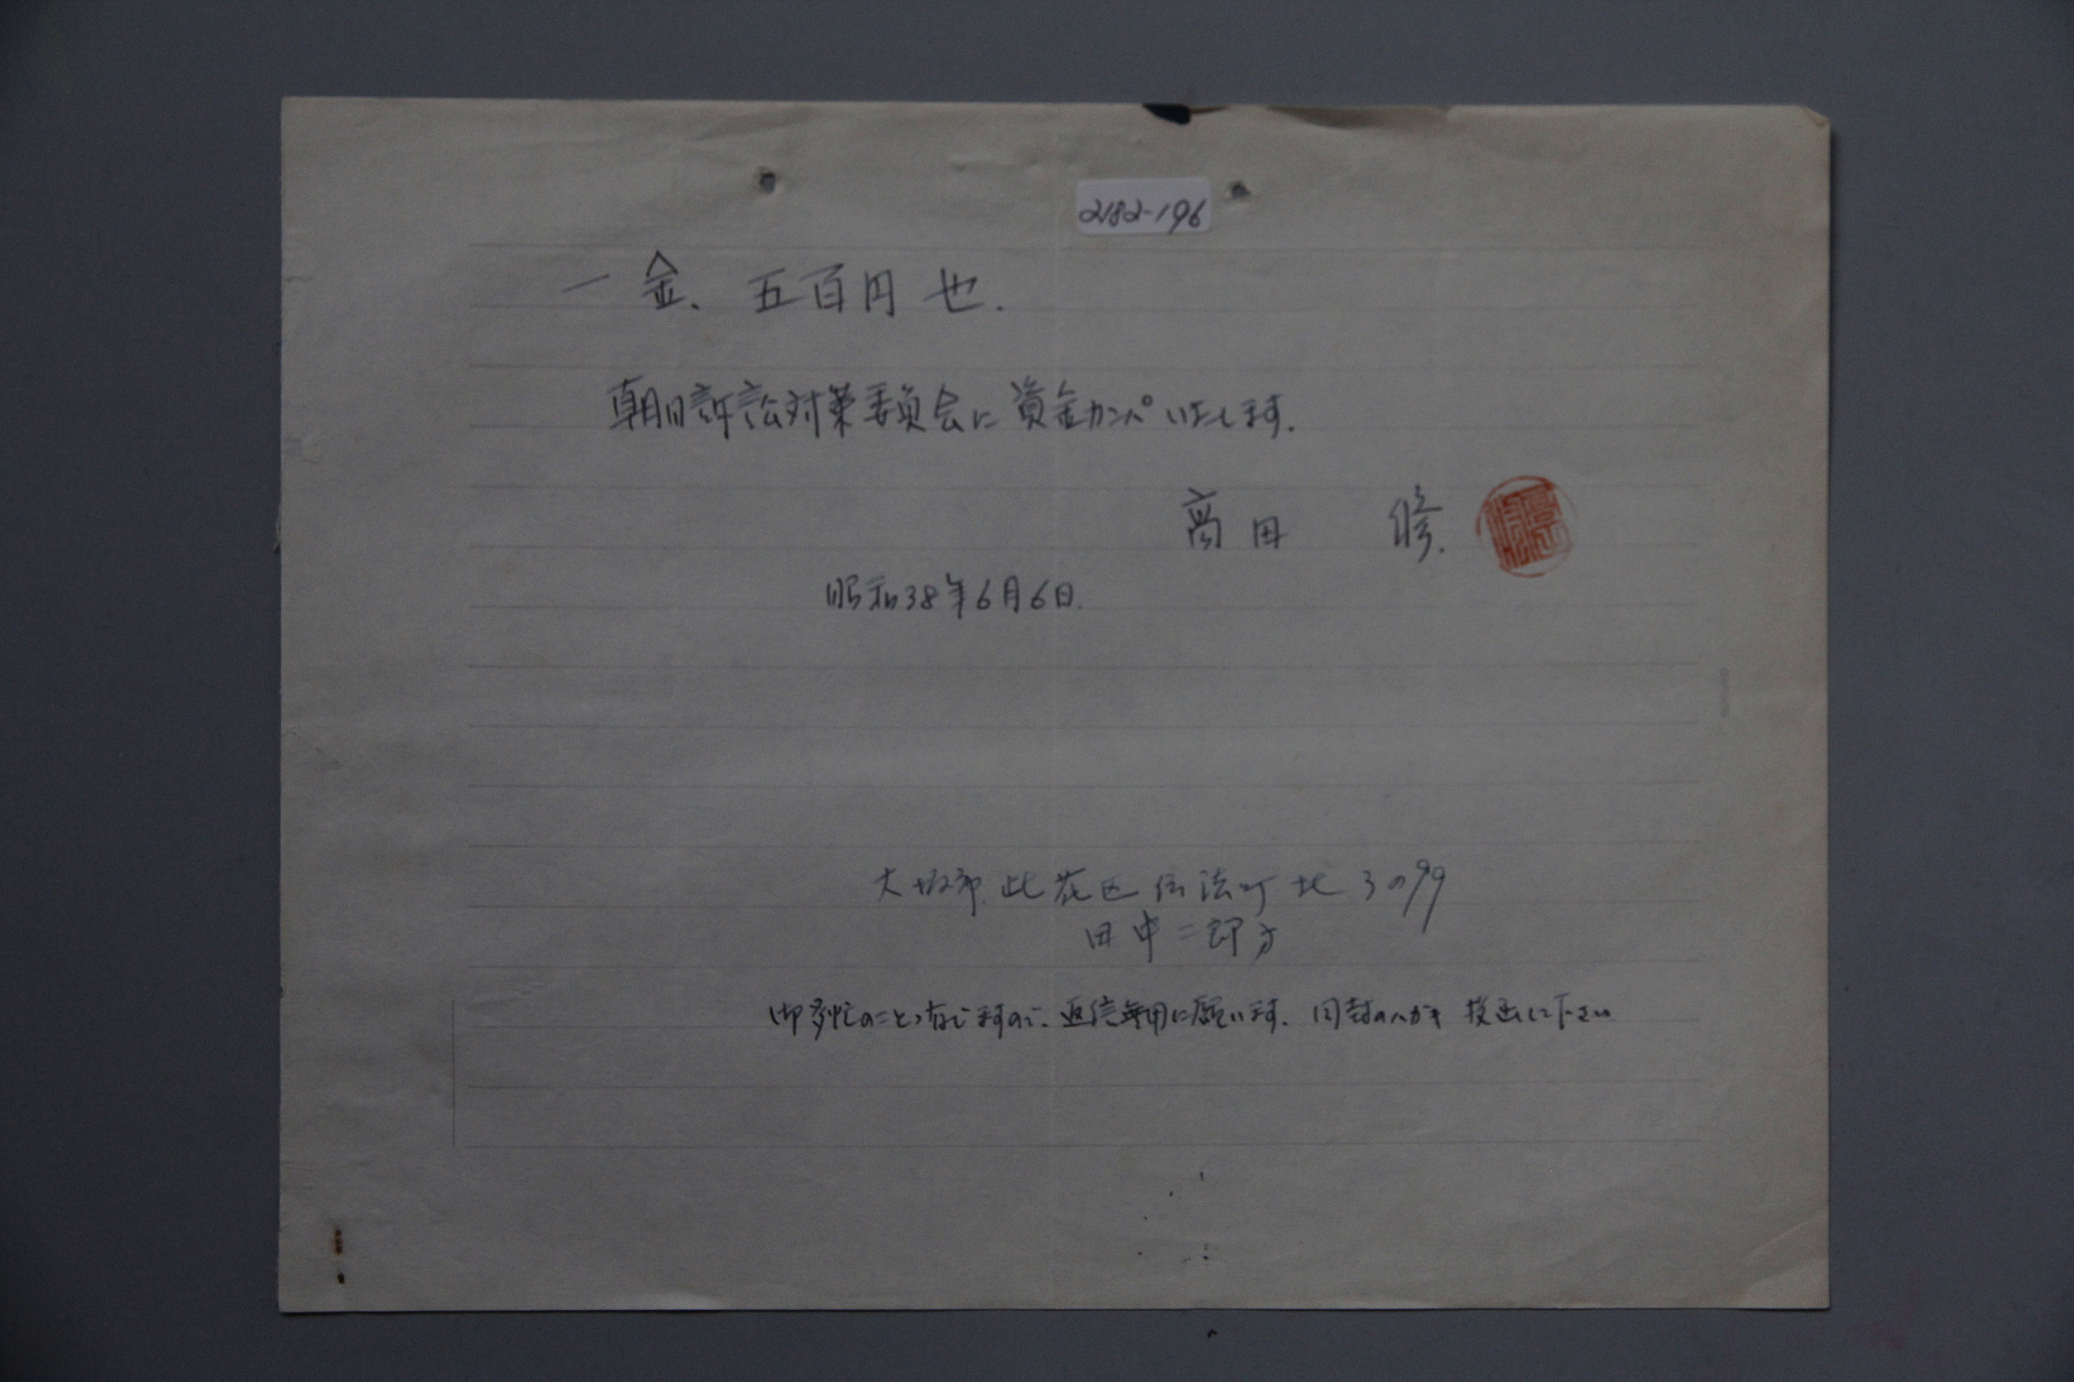 2182-196
一金、五百円也.
朝日訴訟対策委員会に資金カンパいたします.
高田 修.
昭和38年6月6日.
大阪市此花区伝法町北3の99
田中二郎方
御多忙のことゝ存じますので、返信無用に願います. 同封のハガキ投函して下さい